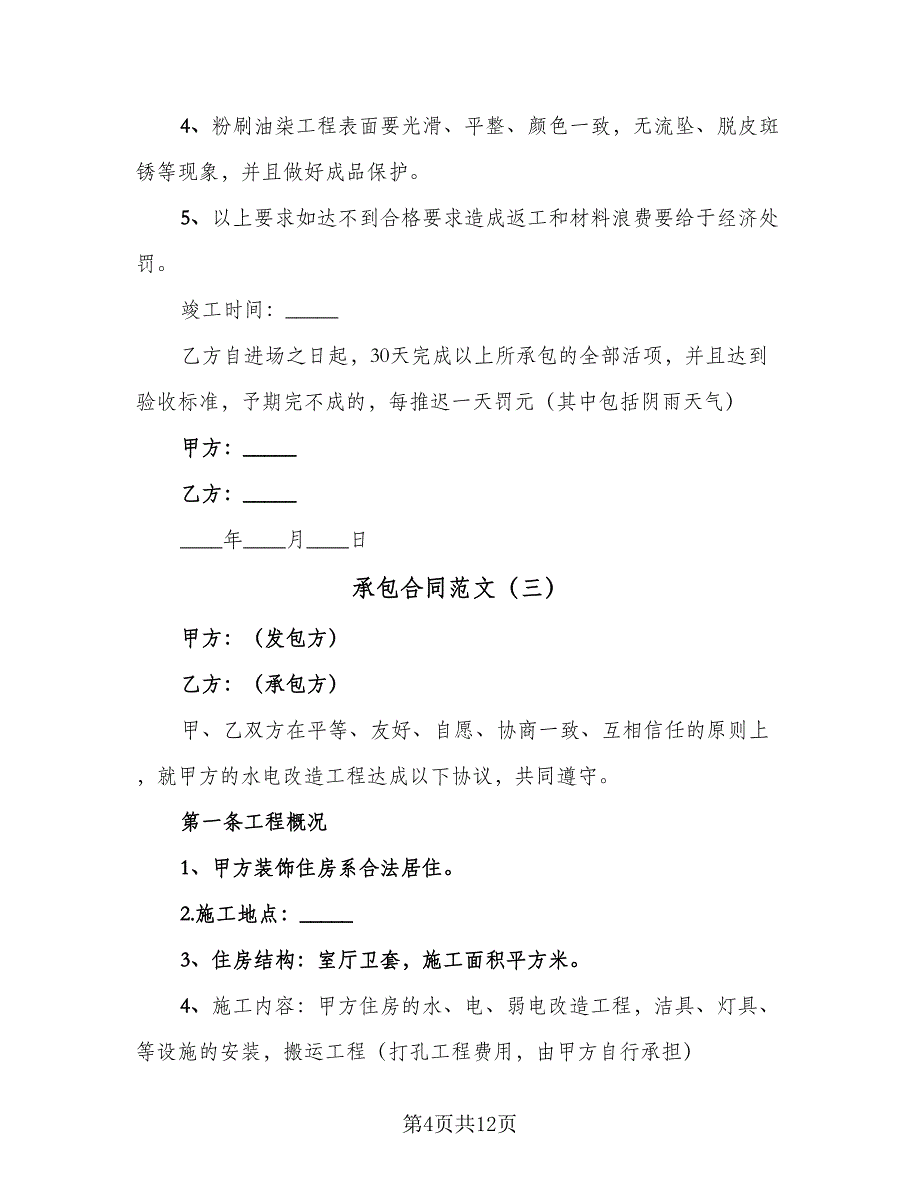 4、粉刷油柒工程表面要光滑、平整、颜色一致，无流坠、脱皮斑
锈等现象，并且做好成品保护。
5、以上要求如达不到合格要求造成返工和材料浪费要给于经济处
罚。
竣工时间：_____
乙方自进场之日起，30天完成以上所承包的全部活项，并且达到
验收标准，予期完不成的，每推迟一天罚元（其中包括阴雨天气）
甲方：_____
乙方：_____
____年____月____日
承包合同范文（三）
甲方：（发包方）
乙方：（承包方）
甲、乙双方在平等、友好、自愿、协商一致、互相信任的原则上
，就甲方的水电改造工程达成以下协议，共同遵守。
第一条工程概况
1、甲方装饰住房系合法居住。
2.施工地点：_____
3、住房结构：室厅卫套，施工面积平方米。
4、施工内容：甲方住房的水、电、弱电改造工程，洁具、灯具、
等设施的安装，搬运工程（打孔工程费用，由甲方自行承担）
第4页共12页